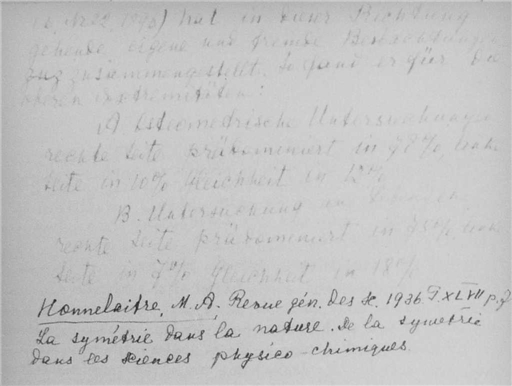 hat in dieser Richtung
gehende eigene und fremde Beobachtungen
zusammengestellt. So fand er für die
oberen Extremitäten:
A Osteometrische Untersuchungen
rechte Seite prädominiert in 78%, linke
Seite in 10% Gleichheit in 12%
B. Untersuchung an
rechte Seite prädominiert in 75% linke
Seite in 7% Gleichheit in 18%
Honnelaitre, M. A. Revue gén. des Sc. 1936. T XLVII p.
La symétrie dans la nature. De la symetrie
dans les sciences physico-chimiques